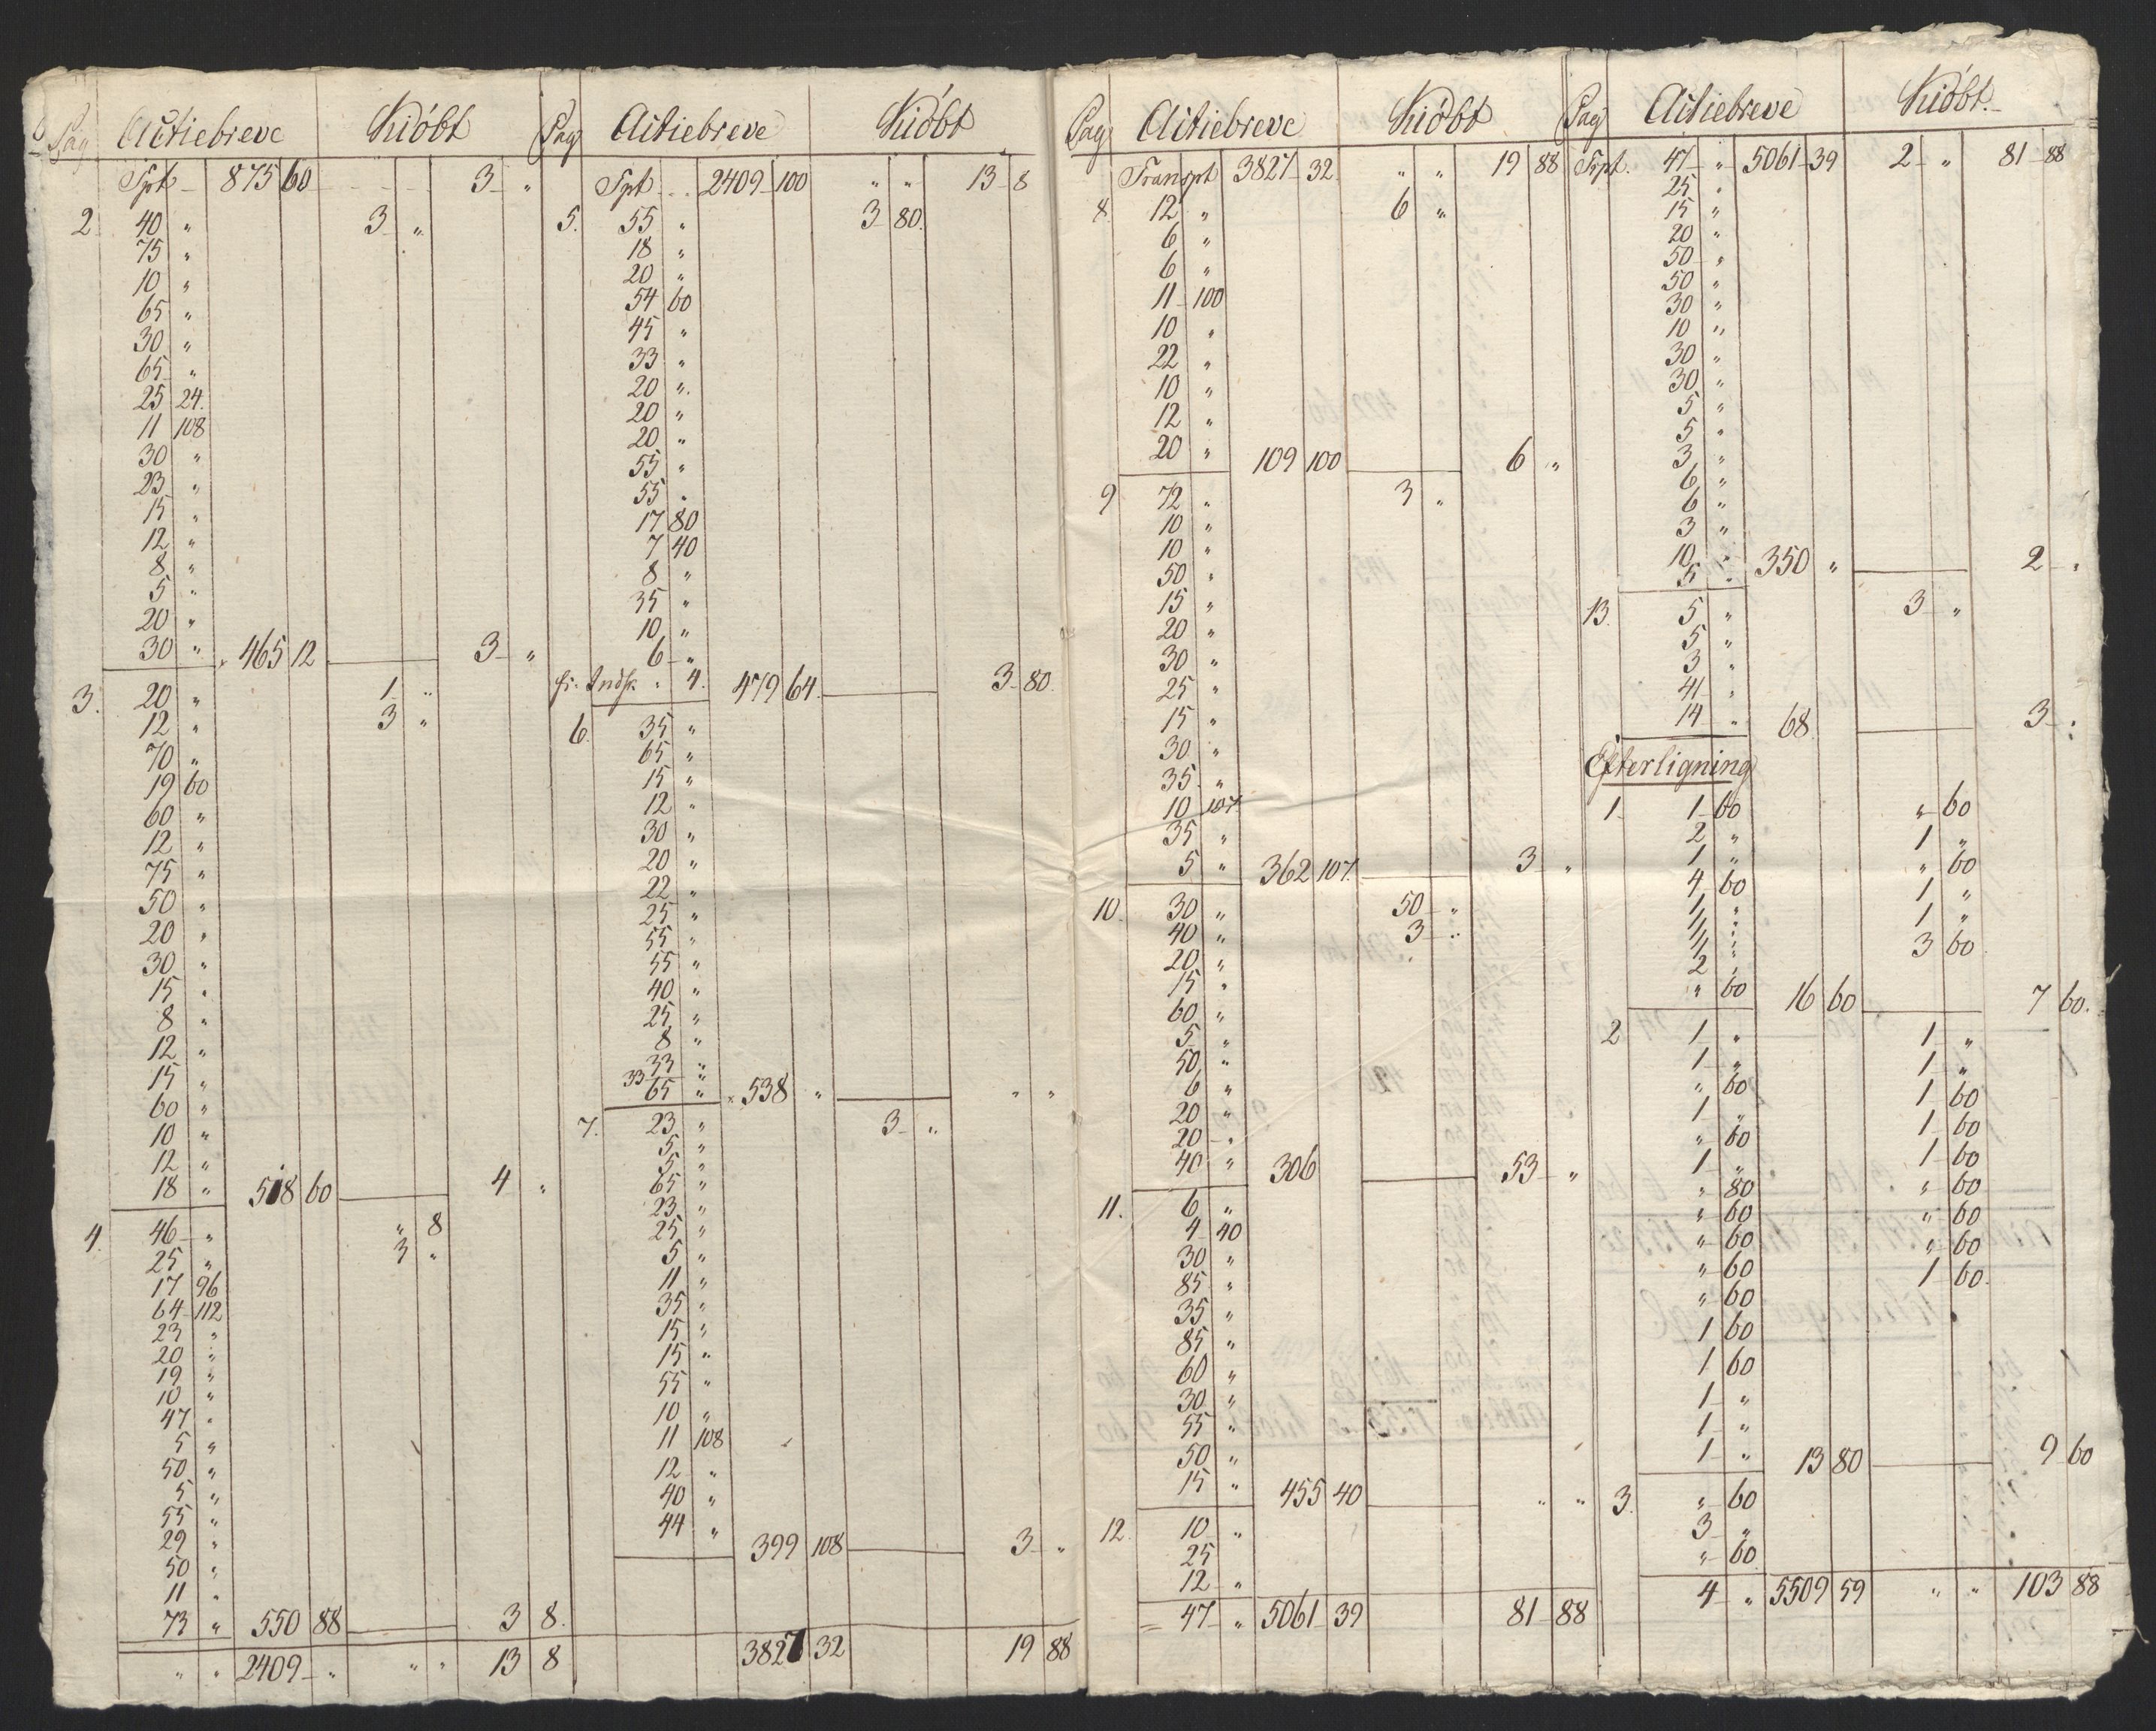 Pag Actiebreve Kióbt
Tpt 875 60 3 "
2. 40 " 3 "
75 "
10 "
65 "
30 "
65 "
25 24.
11 108
30 "
23 "
15 "
12 "
8 "
5 "
20 "
30 " 465 12 3 "
3. 20 " 1 "
12 " 3 "
70 "
19 60
60 "
12 "
75 "
50 "
20 "
30 "
15 "
8 "
12 "
15 "
60 "
10 "
12 "
18 " 518 60 4 "
4. 46 " " 8
25 " 3 "
17 96
64 112
23 "
20 "
19 "
10 "
47 "
5 "
50 "
5 "
55 "
29 "
50 "
11 "
73 " 550 88 3 8.
" " 2409 " " " 13 8
Pag Actiebreve Kióbt
Tpt 2409 100 " " 13 8
5. 55 " 3 80.
18 "
20 "
54 60
45 "
33 "
20 "
20 "
20 "
55 "
55 "
17 80
7 40
8 "
35 "
10 "
6 "
" 4. 479 64. 3 80.
6. 35 "
65 "
15 "
12 "
30 "
20 "
22 "
25 "
55 "
55 "
40 "
25 "
8 "
33 "
33
65 " 538 " " "
7. 23 " 3 "
5 "
5 "
65 "
23 "
25 "
5 "
11 "
35 "
15 "
15 "
55 "
10 "
11 108
12 "
40 "
44 "
399 108 3 "
3827 32 19 88
Pag Actiebreve Kióbt
Transpt 3827 32. " " 19 88
8 12 " 6 "
6 "
6 "
11 100
10 "
22 "
10 "
12 "
20 " 109 100 6 "
9 72 " 3 "
10 "
10 "
50 "
15 "
20 "
30 "
25 "
15 "
30 "
35 "
10 107
35 "
5 " 362 107. 3 "
10. 30 " 50 "
40 " 3 "
20 "
15 "
60 "
5 "
50 "
6 "
20 "
20 "
40 " 306 53 "
11. 6 "
4 40
30 "
85 "
35 "
85 "
60 "
30 "
55 "
50 "
15 " 455 40 " "
12. 10 "
25
12 "
47 " 5061 39 81 88
Pag Actiebreve Kióbt.
Trpt. 47 " 5061 39 2 " 81 88
25 "
15 "
20 "
50 "
50 "
30 "
10 "
30 "
30 "
5 "
5 "
3 "
6 "
6 "
3 "
10 "
5 " 350 " 2 "
13. 5 " 3 "
5 "
3 "
41 "
14 " 68. 3 "
Efterligning
1 1 60 " 60
2 " 1 "
1 " " 60
4 60 1 "
1 " 1 "
1 " 3 60
1 "
2 "
" 60 16 60 7 60.
2 1 " 1 "
1 " 1 "
" 60 1 60
1 " 1 60
" 60 1 60
1 " " 60
" 80 " 60
" 60 " 60
" 60 1 60.
" 60
" 60
1 60
1 60
1 "
1 "
1 " 13 80 9 60
3. " 60
3 "
" 60
4 " 5509 59 " " 103 88